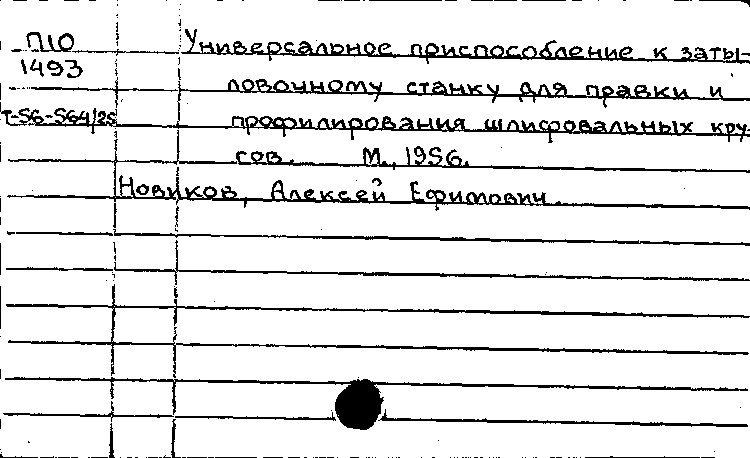 П10 Универсальное приспособление к заты-
1493 ловочному станку для правки и
Т-56-564/25 профилирования шлифовальных кру-
гов. М., 1956.
Новиков, Алексей Ефимович.